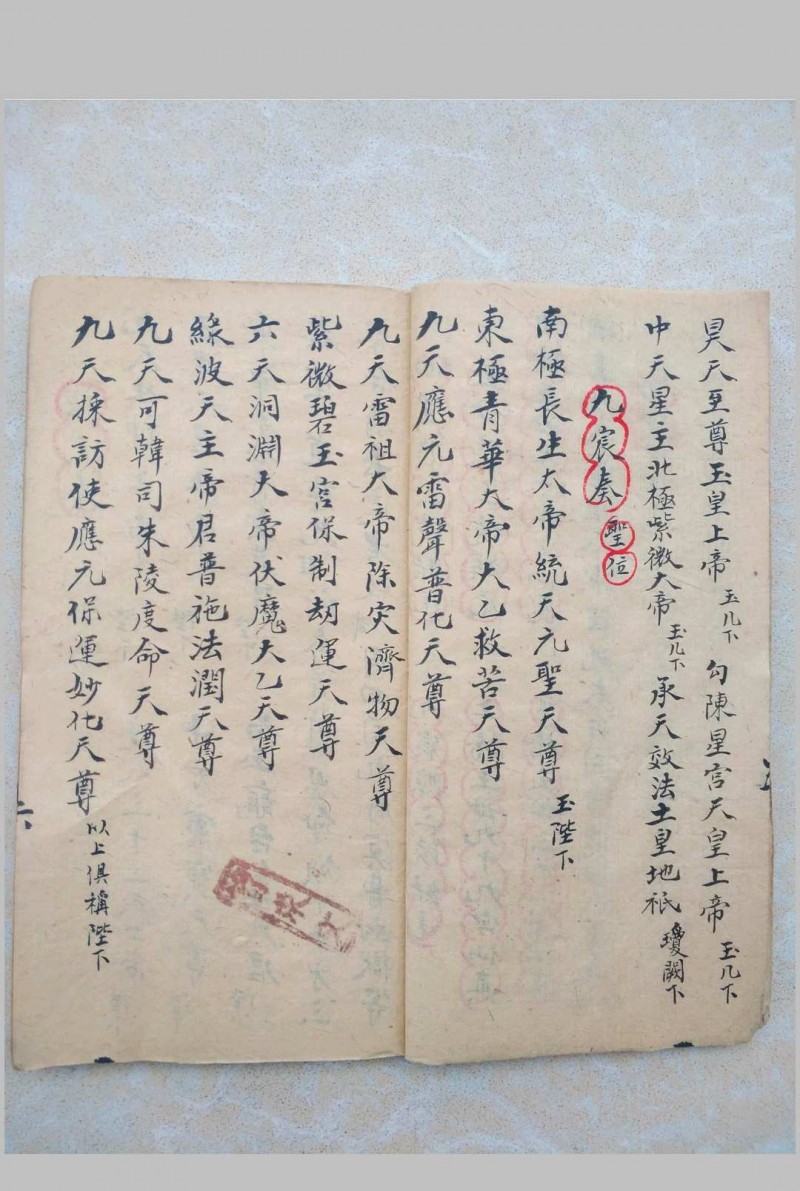 昊天至尊玉皇上帝 玉几下 勾陳星宮天皇上帝 玉几下
中天星主北極紫微大帝 玉几下 承天效法土皇地祇 瓊闕下
九宸奏 聖位
南極長生太帝統天元聖天尊 玉陛下
東極青華大帝大乙救苦天尊
九天應元雷聲普化天尊
九天雷祖大帝除灾濟物天尊
紫微碧玉宮保制劫運天尊
六天洞淵大帝伏魔大乙天尊
綠波天主帝君普施法潤天尊
九天可韓司朱陵度命天尊
九天採訪使應元保運妙化天尊 以上俱稱陛下
六